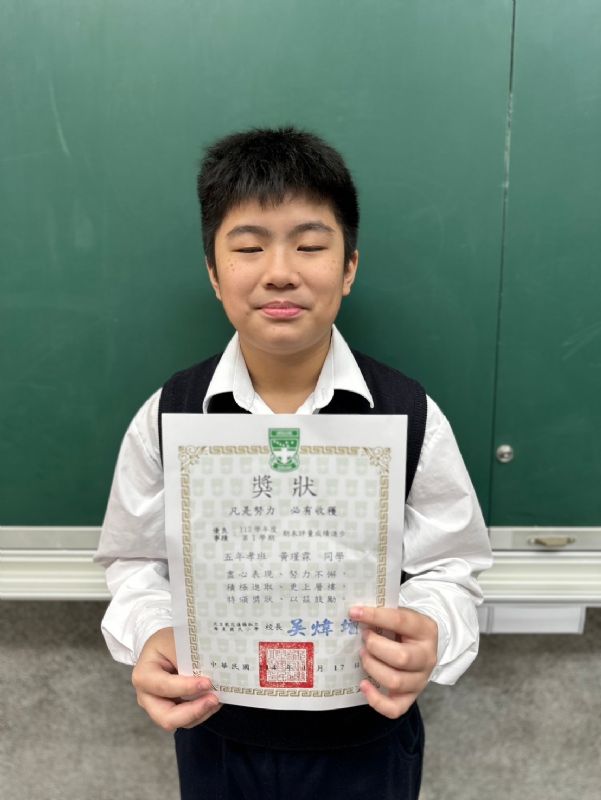 獎狀
凡是努力 必有收穫
優良事蹟 112學年度第1學期 期末評量成績進步
五年孝班 黃瑾霖 同學
盡心表現、努力不懈，
積極進取、更上層樓，
特頒獎狀，以茲鼓勵。
校長 吳煒增
中華民國 月 17